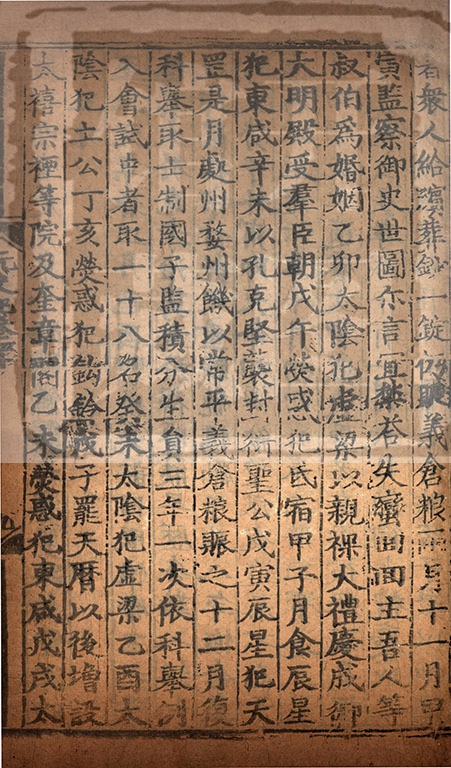 者衆人給葬鈔一錠仍賑義倉粮兩月十一月甲
寅監察御史世圖尔言宜禁荅失蠻回回主吾人等
叔伯爲婚姻乙卯太陰犯虛梁以親祼大禮慶成御
大明殿受羣臣朝戊午熒惑犯氐宿甲子月食辰星
犯東咸辛未以孔克堅襲封衍聖公戊寅辰星犯天
罡是月處州婺州饑以常平義倉粮賑之十二月復
科舉取士制國子監積分生員三年一次依科舉例
入會試中者取一十八名癸未太陰犯虛梁乙酉太
陰犯土公丁亥熒惑犯鈎鈐戊子罷天曆以後增設
太禧宗禋等院及奎章閣乙未熒惑犯東咸戊戌太